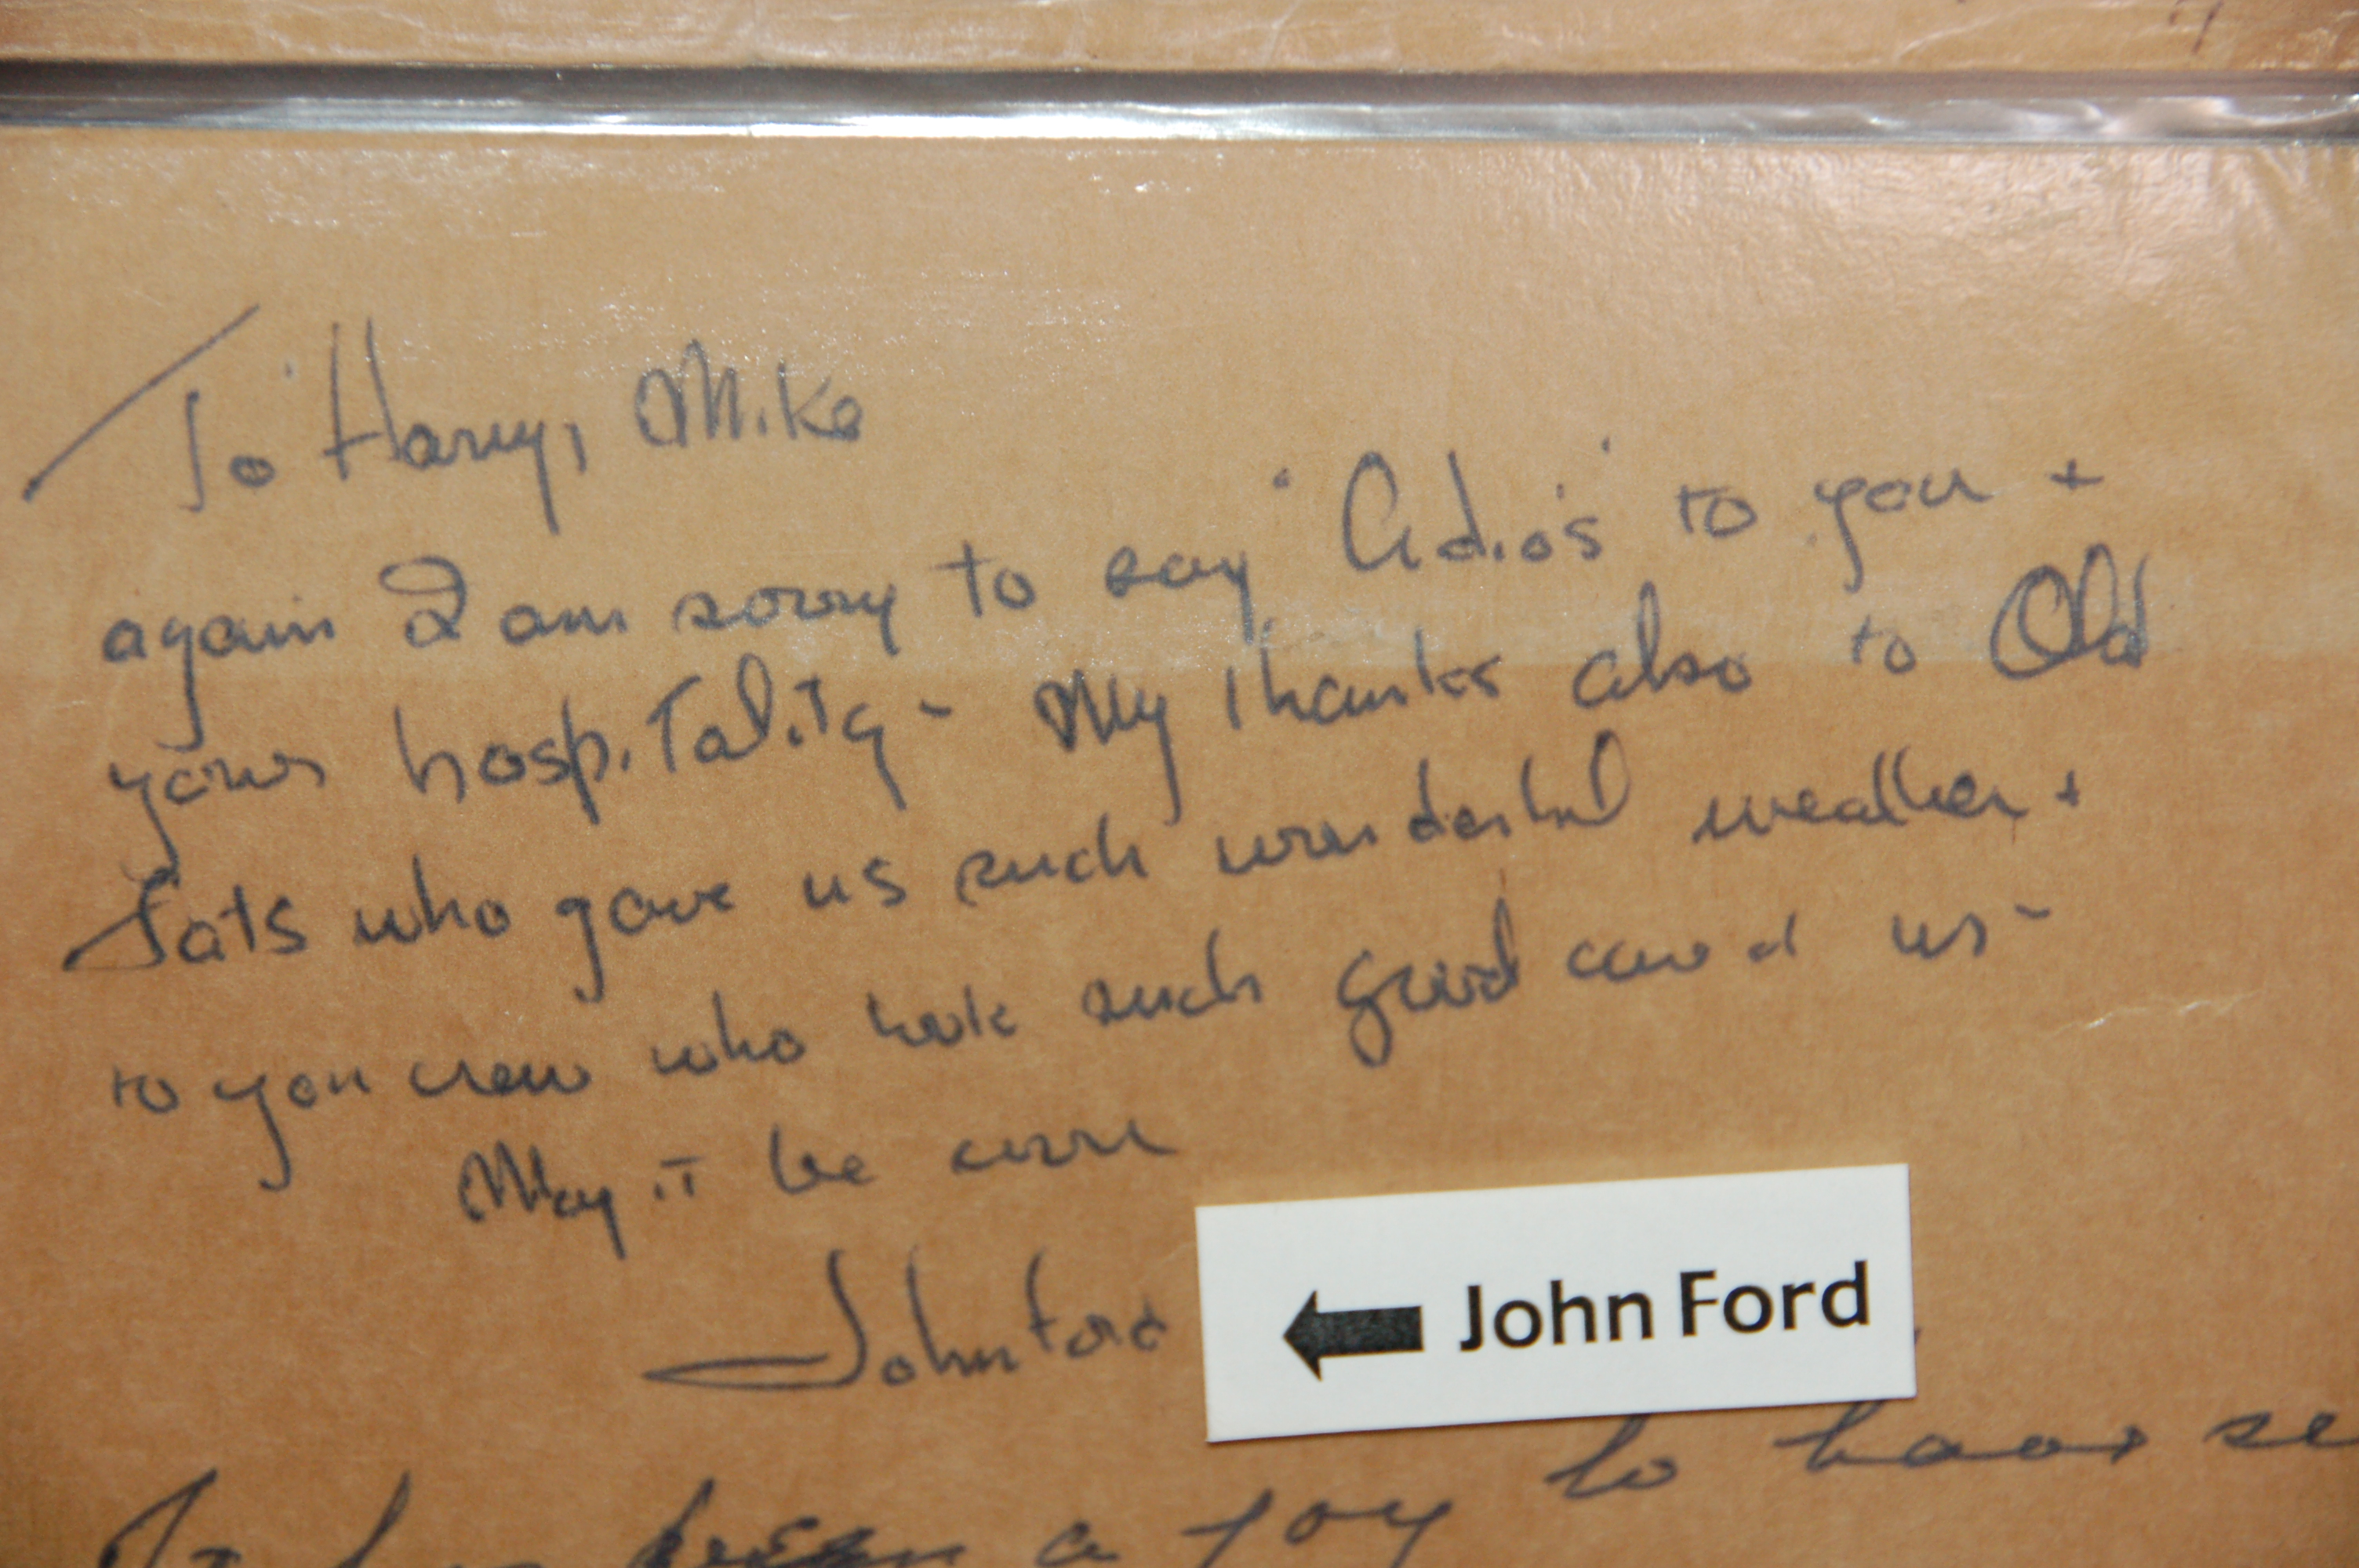 To Harry, Mike
again I am sorry to say "Adios" to you +
your hospitality - My thanks also to Old
Tats who gave us such wonderful weather +
to you crew who took such good care of us -
May it be soon
John Ford
← John Ford
a joy to have se